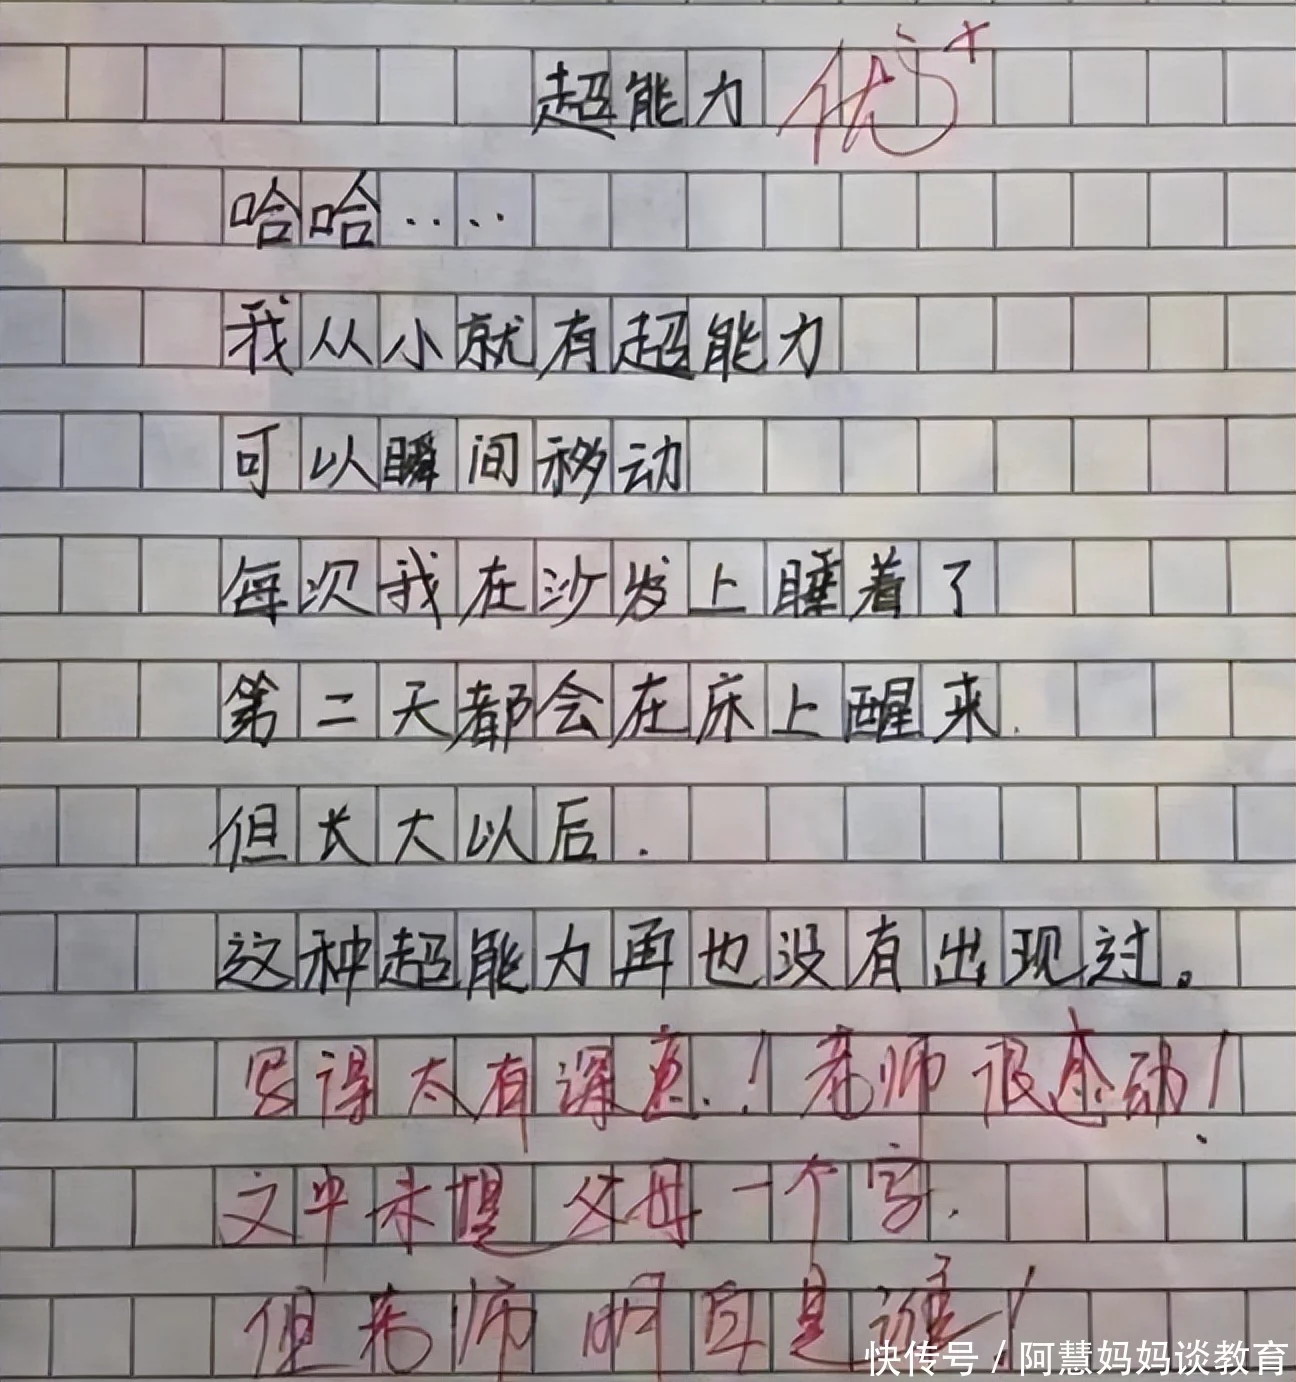 超能力 优+
哈哈····
我从小就有超能力
可以瞬间移动
每次我在沙发上睡着了
第二天都会在床上醒来.
但长大以后.
这种超能力再也没有出现过。
写得太有深意.!老师很感动!
文中未提父母一个字.
但老师明白是谁!
快传号/阿慧妈妈谈教育